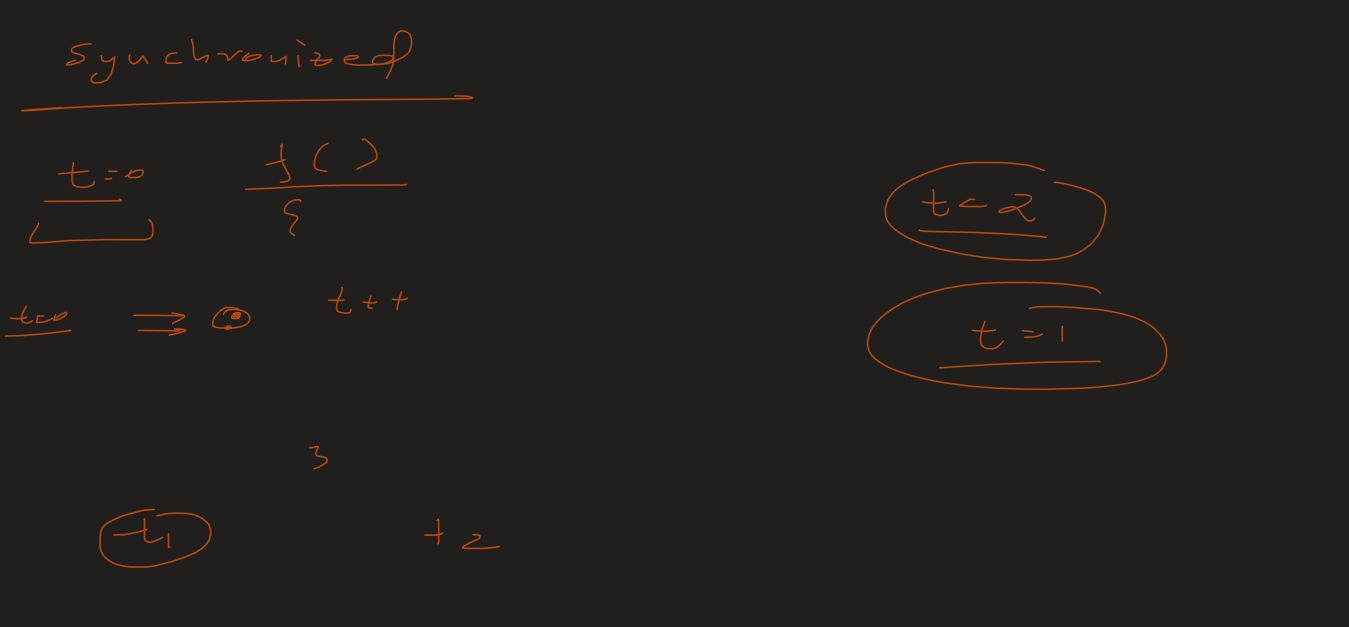 Synchronized
t=0 f()
{
t=2
t=0 ⇒ t++
t=1
}
t1 t2